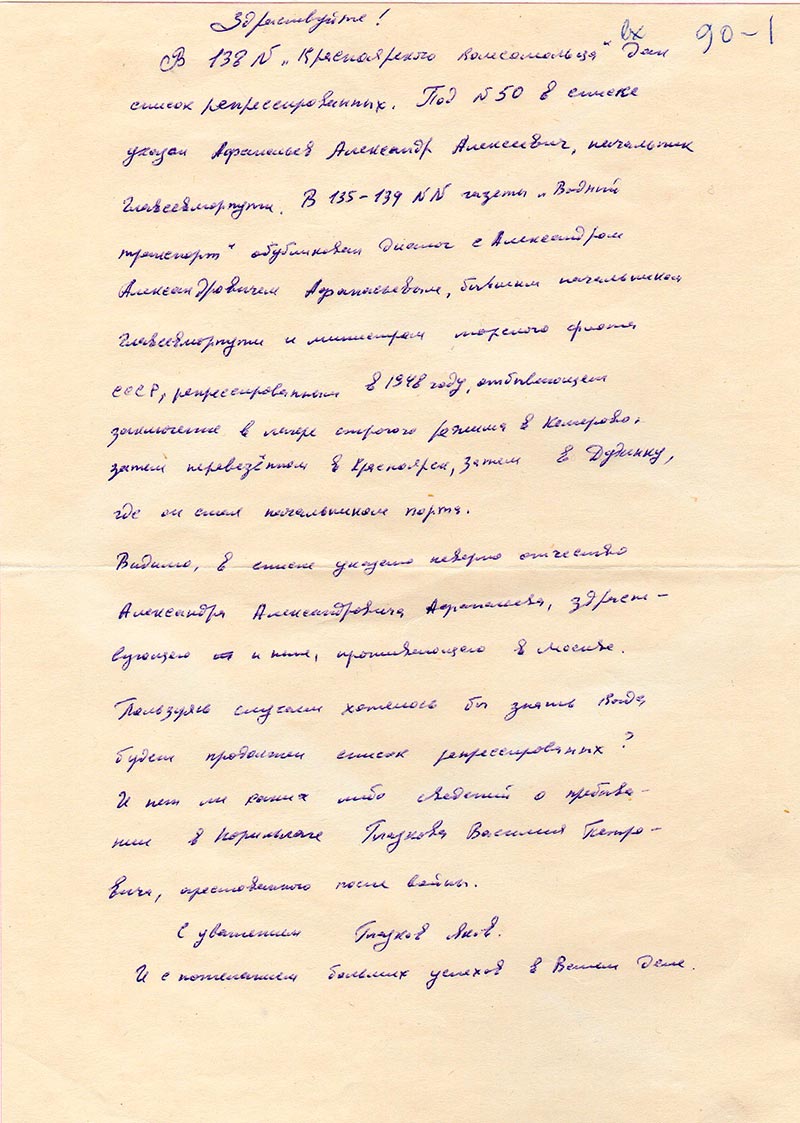 вх 90-1
Здраствуйте!
В 138 N „Красноярского комсомольца" дан
список репрессированных. Под N 50 в списке
указан Афанасьев Александр Алексеевич, начальник
Главсевморпути. В 135-139 NN газеты „Водный
транспорт" обубликован диалог с Александром
Александровичем Афанасьевым, бывшим начальником
Главсевморпути и министром морского флота
СССР, репрессированным в 1948 году, отбывающем
заключение в лагере строгого режима в Кемерово,
затем перевезённом в Красноярск, затем в Дудинку,
где он стал начальником порта.
Видимо, в списке указано неверно отчество
Александра Александровича Афанасьева, здравст-
вующего и ныне, проживающего в Москве.
Пользуясь случаем хотелось бы знать когда
будет продолжен список репрессированных?
И нет ли каких либо сведений о пребыва-
нии в Норильлаге Глазкова Василия Петро-
вича, арестованного после войны.
С уважением Глазков Яков.
И с пожеланием больших успехов в Вашем деле.